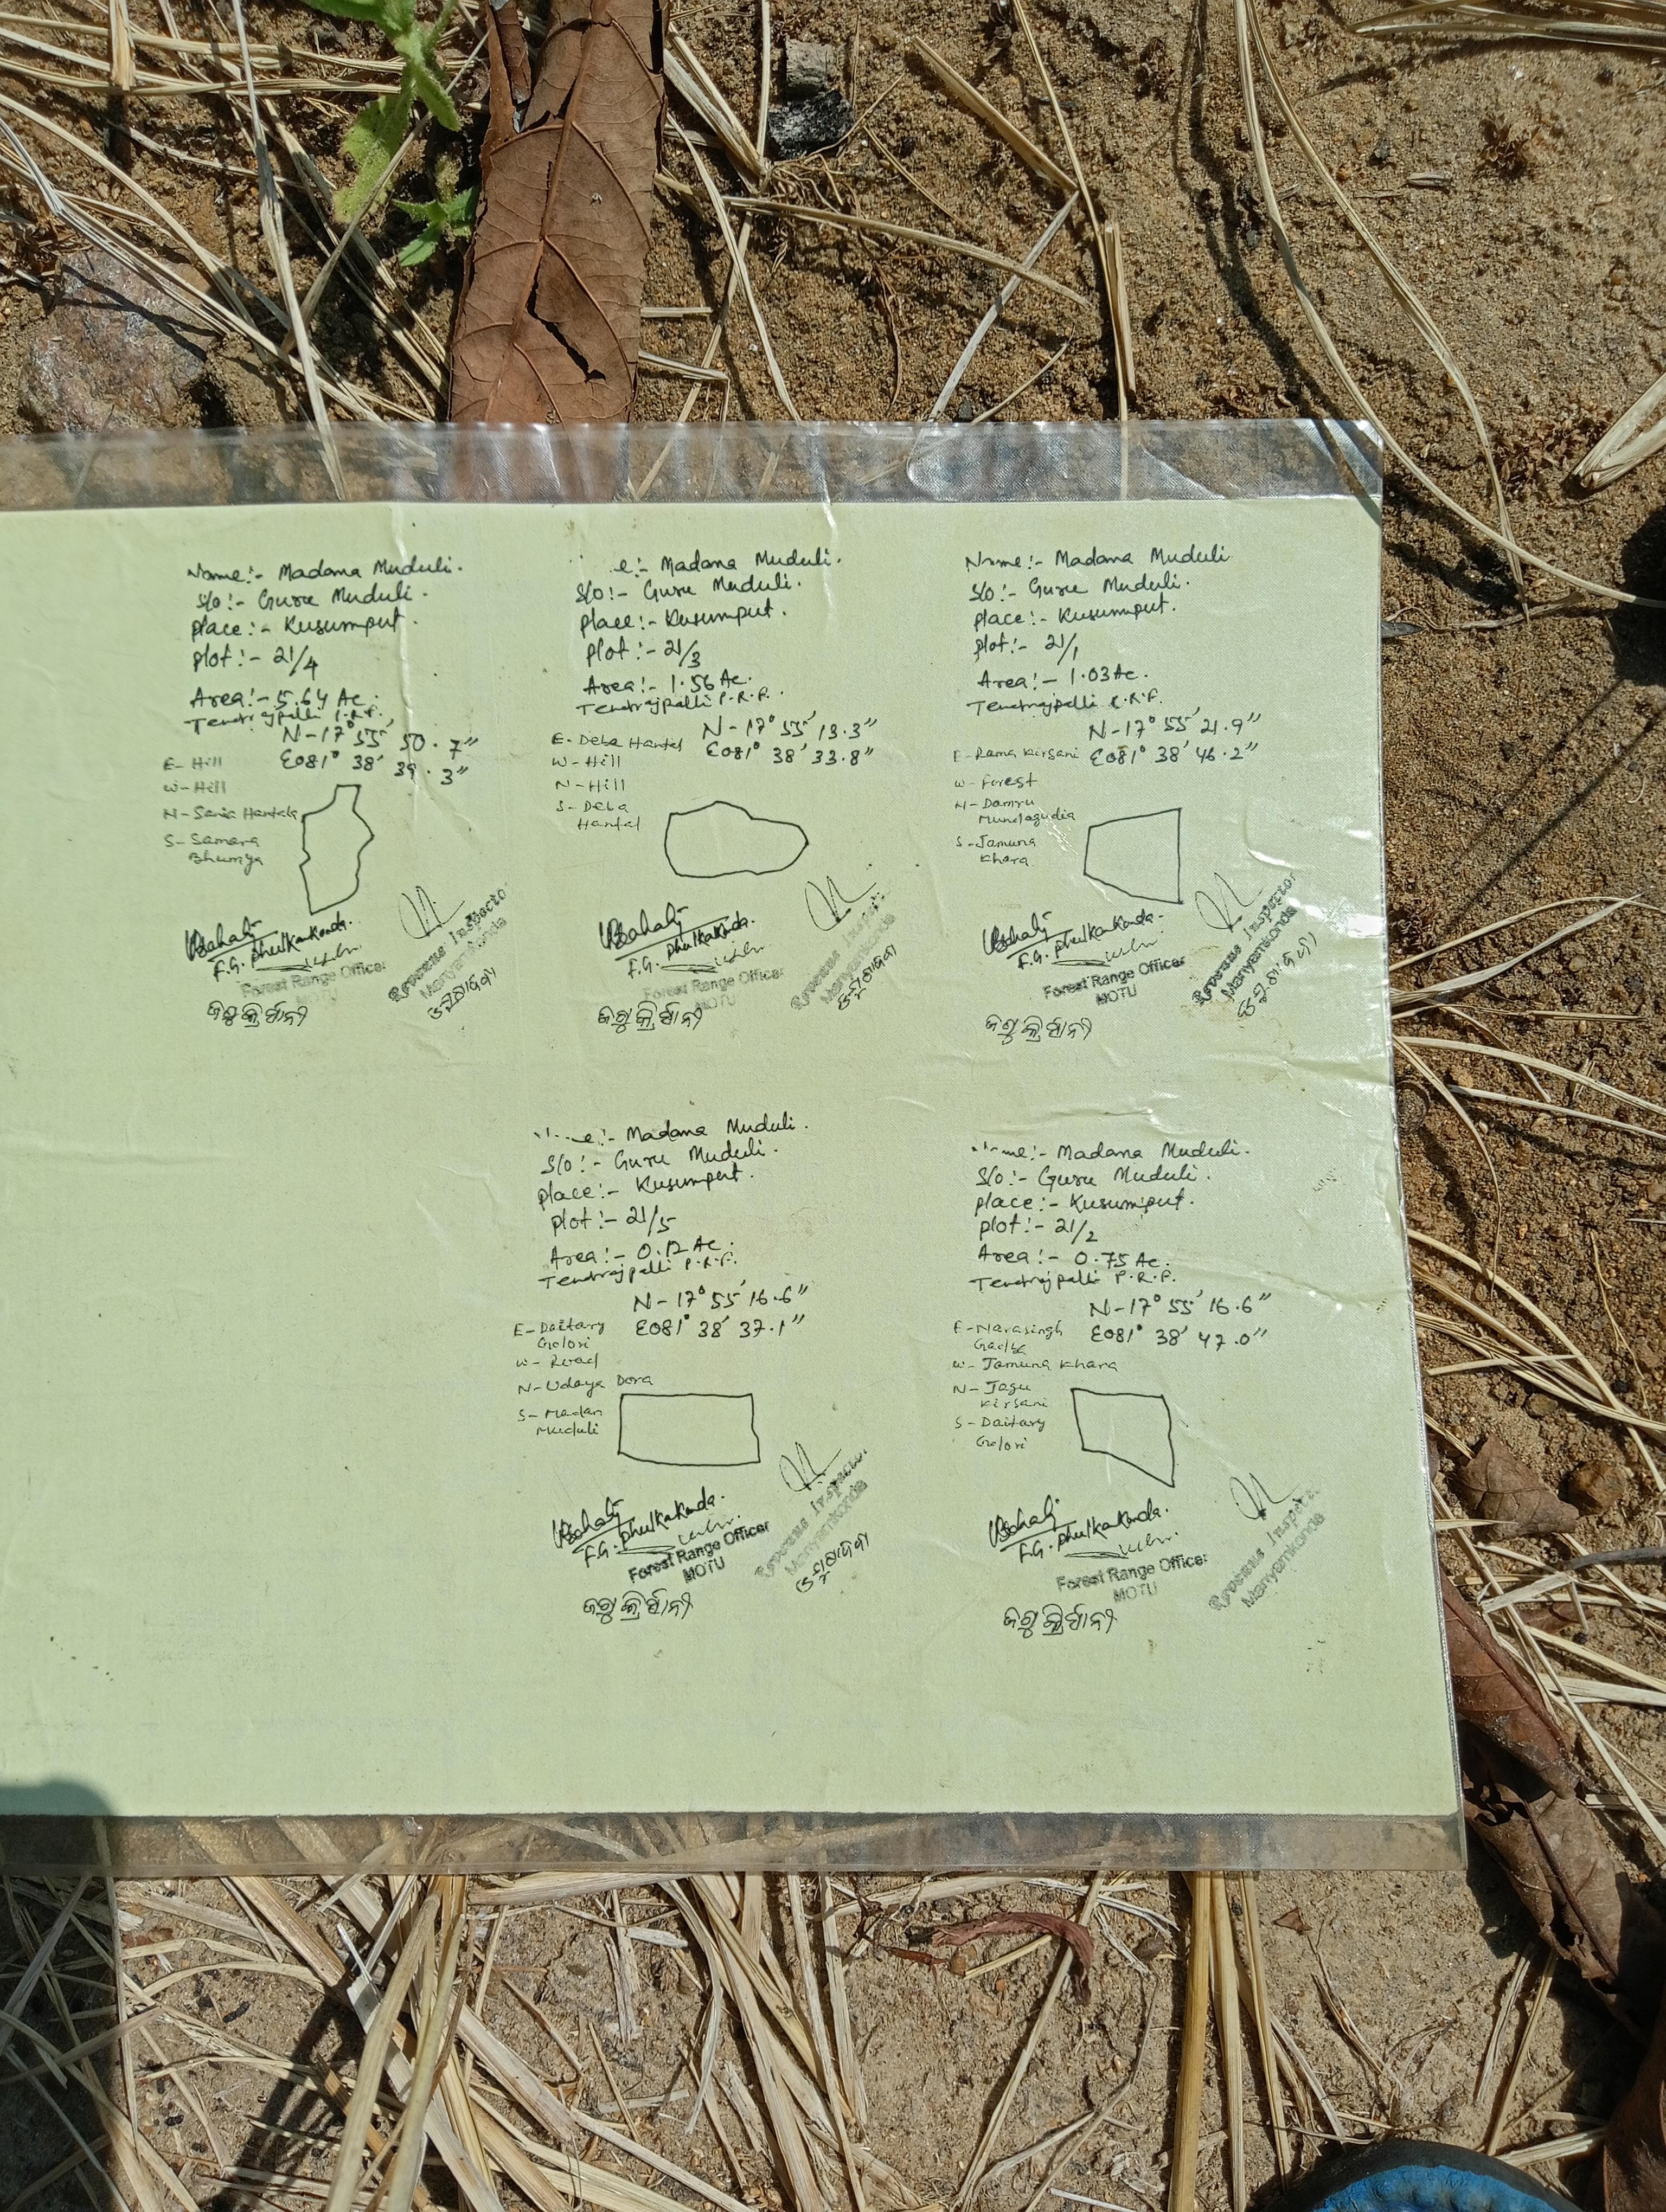 Name:- Madana Muduli.
S/o :- Guru Muduli.
place:- Kusumput.
plot:- 21/4
Area:- 5.64 Ac.
Tentrajpalli P.R.F.
N-17° 55' 50.7"
E081° 38' 39.3"
E- Hill
W- Hill
N- Sania Hantala
S- Samara
Bhumya
F.G. Phulkakonda.
Forest Range Officer
MOTU
Revenue Inspector
Manyamkonda
ଜଗୁ କିର୍ଷାନୀ
e:- Madana Muduli.
S/o :- Guru Muduli.
place:- Kusumput.
plot:- 21/3
Area:- 1.56 Ac.
Tentrajpalli P.R.F.
N-17° 55' 13.3"
E081° 38' 33.8"
E- Deba Hantal
W- Hill
N- Hill
S- Deba
Hantal
F.G. Phulkakonda.
Forest Range Officer
MOTU
Revenue Inspector
Manyamkonda
ଜଗୁ କିର୍ଷାନୀ
Name:- Madana Muduli
S/o :- Guru Muduli.
place:- Kusumput.
plot:- 21/1
Area:- 1.03 Ac.
Tentrajpalli P.R.F.
N-17° 55' 21.9"
E081° 38' 46.2"
E- Rama Kirsani
W- Forest
N- Damru
Mundagudia
S- Jamuna
Khara
F.G. Phulkakonda.
Forest Range Officer
MOTU
Revenue Inspector
Manyamkonda
ଜଗୁ କିର୍ଷାନୀ
e:- Madana Muduli.
S/o :- Guru Muduli.
place:- Kusumput.
plot:- 21/5
Area:- 0.12 Ac.
Tentrajpalli P.R.F.
N-17° 55' 16.6"
E081° 38' 37.1"
E- Daitary
Golori
W- Road
N- Udaya Dora
S- Madan
Muduli
F.G. Phulkakonda.
Forest Range Officer
MOTU
Revenue Inspector
Manyamkonda
ଜଗୁ କିର୍ଷାନୀ
me:- Madana Muduli.
S/o :- Guru Muduli.
place:- Kusumput.
plot:- 21/2
Area:- 0.75 Ac.
Tentrajpalli P.R.F.
N-17° 55' 16.6"
E081° 38' 47.0"
E- Narasingh
W- Jamuna Khara
N- Jagu
Kirsani
S- Daitary
Golori
F.G. Phulkakonda.
Forest Range Officer
MOTU
Revenue Inspector
Manyamkonda
ଜଗୁ କିର୍ଷାନୀ